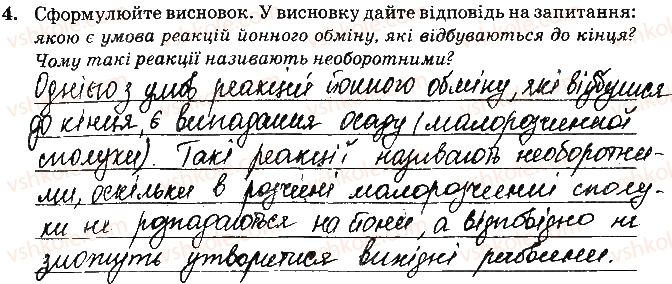 4. Сформулюйте висновок. У висновку дайте відповідь на запитання:
якою є умова реакцій йонного обміну, які відбуваються до кінця?
Чому такі реакції називають необоротними?
Однією з умов реакцій йонного обміну, які відбулися
до кінця, є випадання осаду (малорозчинної
сполуки). Такі реакції називають необоротни-
ми, оскільки в розчині малорозчинні сполу-
ки не розпадаються на йони, а відповідно не
зможуть утворитися вихідні